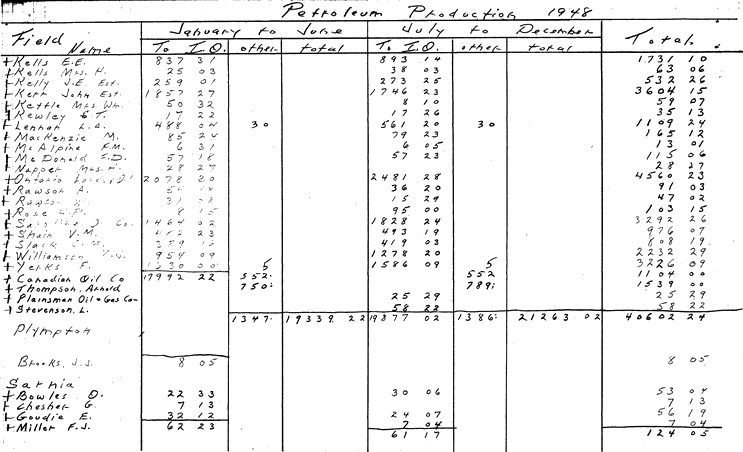 Petroleum Production 1948
Field Name January to June July to December Total
To I.O. other total To I.O. other total
+Kells E.E. 837 31 893 14 1731 10
+Kells Mrs. H. 25 03 38 03 63 06
+Kelly J.E. Est. 259 01 273 25 532 26
+Kerr John Est. 1857 27 1746 23 3604 15
+Kettle Mrs Wm. 50 32 8 10 59 07
+Kewley S T. 17 22 17 26 35 13
+Lennan L.A. 488 04 30 561 20 30 1109 24
+MacKenzie M. 85 24 79 23 165 12
+McAlpine F.M. 6 31 6 05 13 01
+McDonald F.D. 57 18 57 23 115 06
+Napper Mrs. 28 27 28 27
+Ontario 2078 30 2481 28 4560 23
+Rawson A. 36 20 91 03
15 29 47 02
+Rose 8 15 95 00 103 15
1464 02 1828 24 3292 26
+Shain V.M. 23 493 19 976 07
+Slack 419 03 808 19
+Williamson 954 09 1278 20 2232 29
+Yerks F. 00 5 1586 09 5 3226 09
+Canadian Oil Co 17992 22 552. 552 1104 00
+Thompson, Arnold 750. 789. 1539 00
+Plainsman Oil + Gas Co 25 29 25 29
+Stevenson, L. 58 22 58 22
1347. 19339 22 19877 02 1386. 21263 02 40602 24
Plympton
Brooks, J.J. 8 05 8 05
Sarnia
+Bowles O. 22 33 30 06 53 04
+Chesher G. 7 13 7 13
+Goudie E. 32 12 24 07 56 19
+Miller F.J. 62 23 7 04 7 04
61 17 124 05